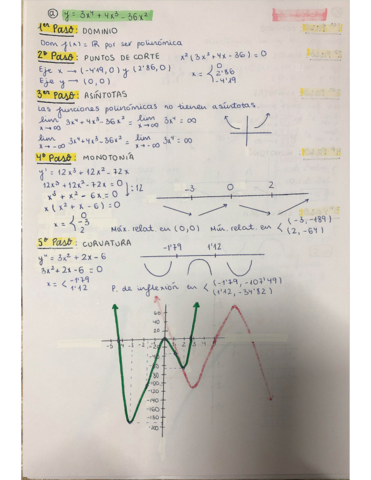 ② y = 3x⁴ + 4x³ - 36x²
1er Paso: DOMINIO
Dom f(x) = ℝ por ser polinómica
2º Paso: PUNTOS DE CORTE x²(3x² + 4x - 36) = 0
Eje x → (-4'19, 0) y (2'86, 0) x = < 0 2'86 -4'19
Eje y → (0, 0)
3er Paso: ASÍNTOTAS
Las funciones polinómicas no tienen asíntotas
lim x→∞ 3x⁴ + 4x³ - 36x² = lim x→∞ 3x⁴ = ∞
lim x→-∞ 3x⁴ + 4x³ - 36x² = lim x→-∞ 3x⁴ = ∞
4º Paso: MONOTONÍA
y' = 12x³ + 12x² - 72x
12x³ + 12x² - 72x = 0 ↓ :12
x³ + x² - 6x = 0
x(x² + x - 6) = 0
x = < 0 -3 2
-3 0 2
Máx. relat en (0,0) Mín. relat en < (-3, -189) (2, -64)
5º Paso: CURVATURA
y'' = 3x² + 2x - 6
3x² + 2x - 6 = 0
x = < -1'79 1'12
-1'79 1'12
P. de inflexión en < (-1'79, -107'49) (1'12, -34'32)